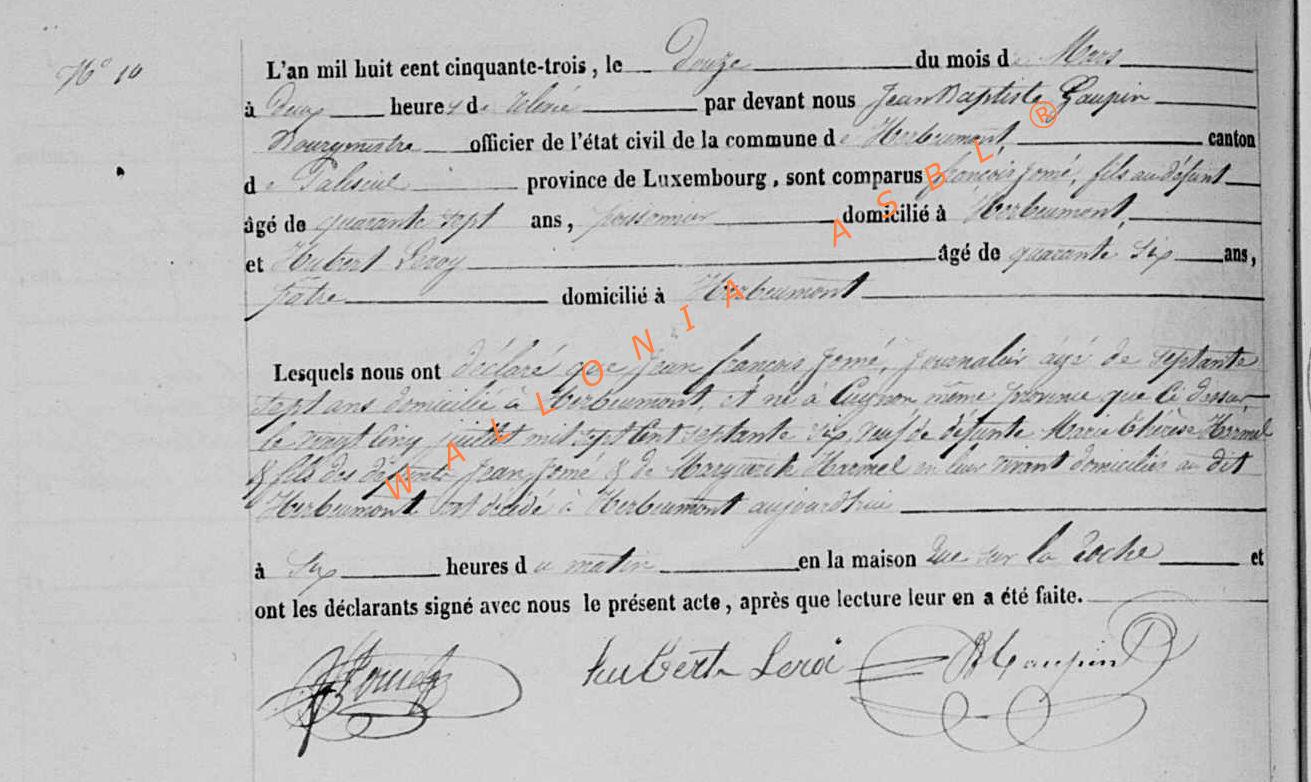 N° 10
L'an mil huit cent cinquante-trois, le Douze du mois de Mars
à Deux heures de relevé par devant nous Jean Baptiste Gaupin
Bourgmestre officier de l'état civil de la commune de Herbeumont canton
de Paliseul province de Luxembourg, sont comparus françois Jomé, fils au défunt
âgé de quarante sept ans, domicilié à Herbeumont,
et Hubert Leroy âgé de quarante six ans,
patre domicilié à Herbeumont
Lesquels nous ont déclaré que Jean françois Jomé, journalier âgé de septante
sept ans domicilié à Herbeumont, et né à Cugnon même province que ci dessus,
le vingt cinq juillet mil sept cent septante six, veuf de défunte Marie Thérèse Harmel
& fils des défunts Jean Jomé & de Margueritte Harmel en leur vivant domiciliés au dit
Herbeumont est décédé à Herbeumont aujourd'hui
à six heures du matin en la maison rue sur la Roche et
ont les déclarants signé avec nous le présent acte, après que lecture leur en a été faite.
Hubert Leroi JB Gaupin
WALLONIA ASBL ®